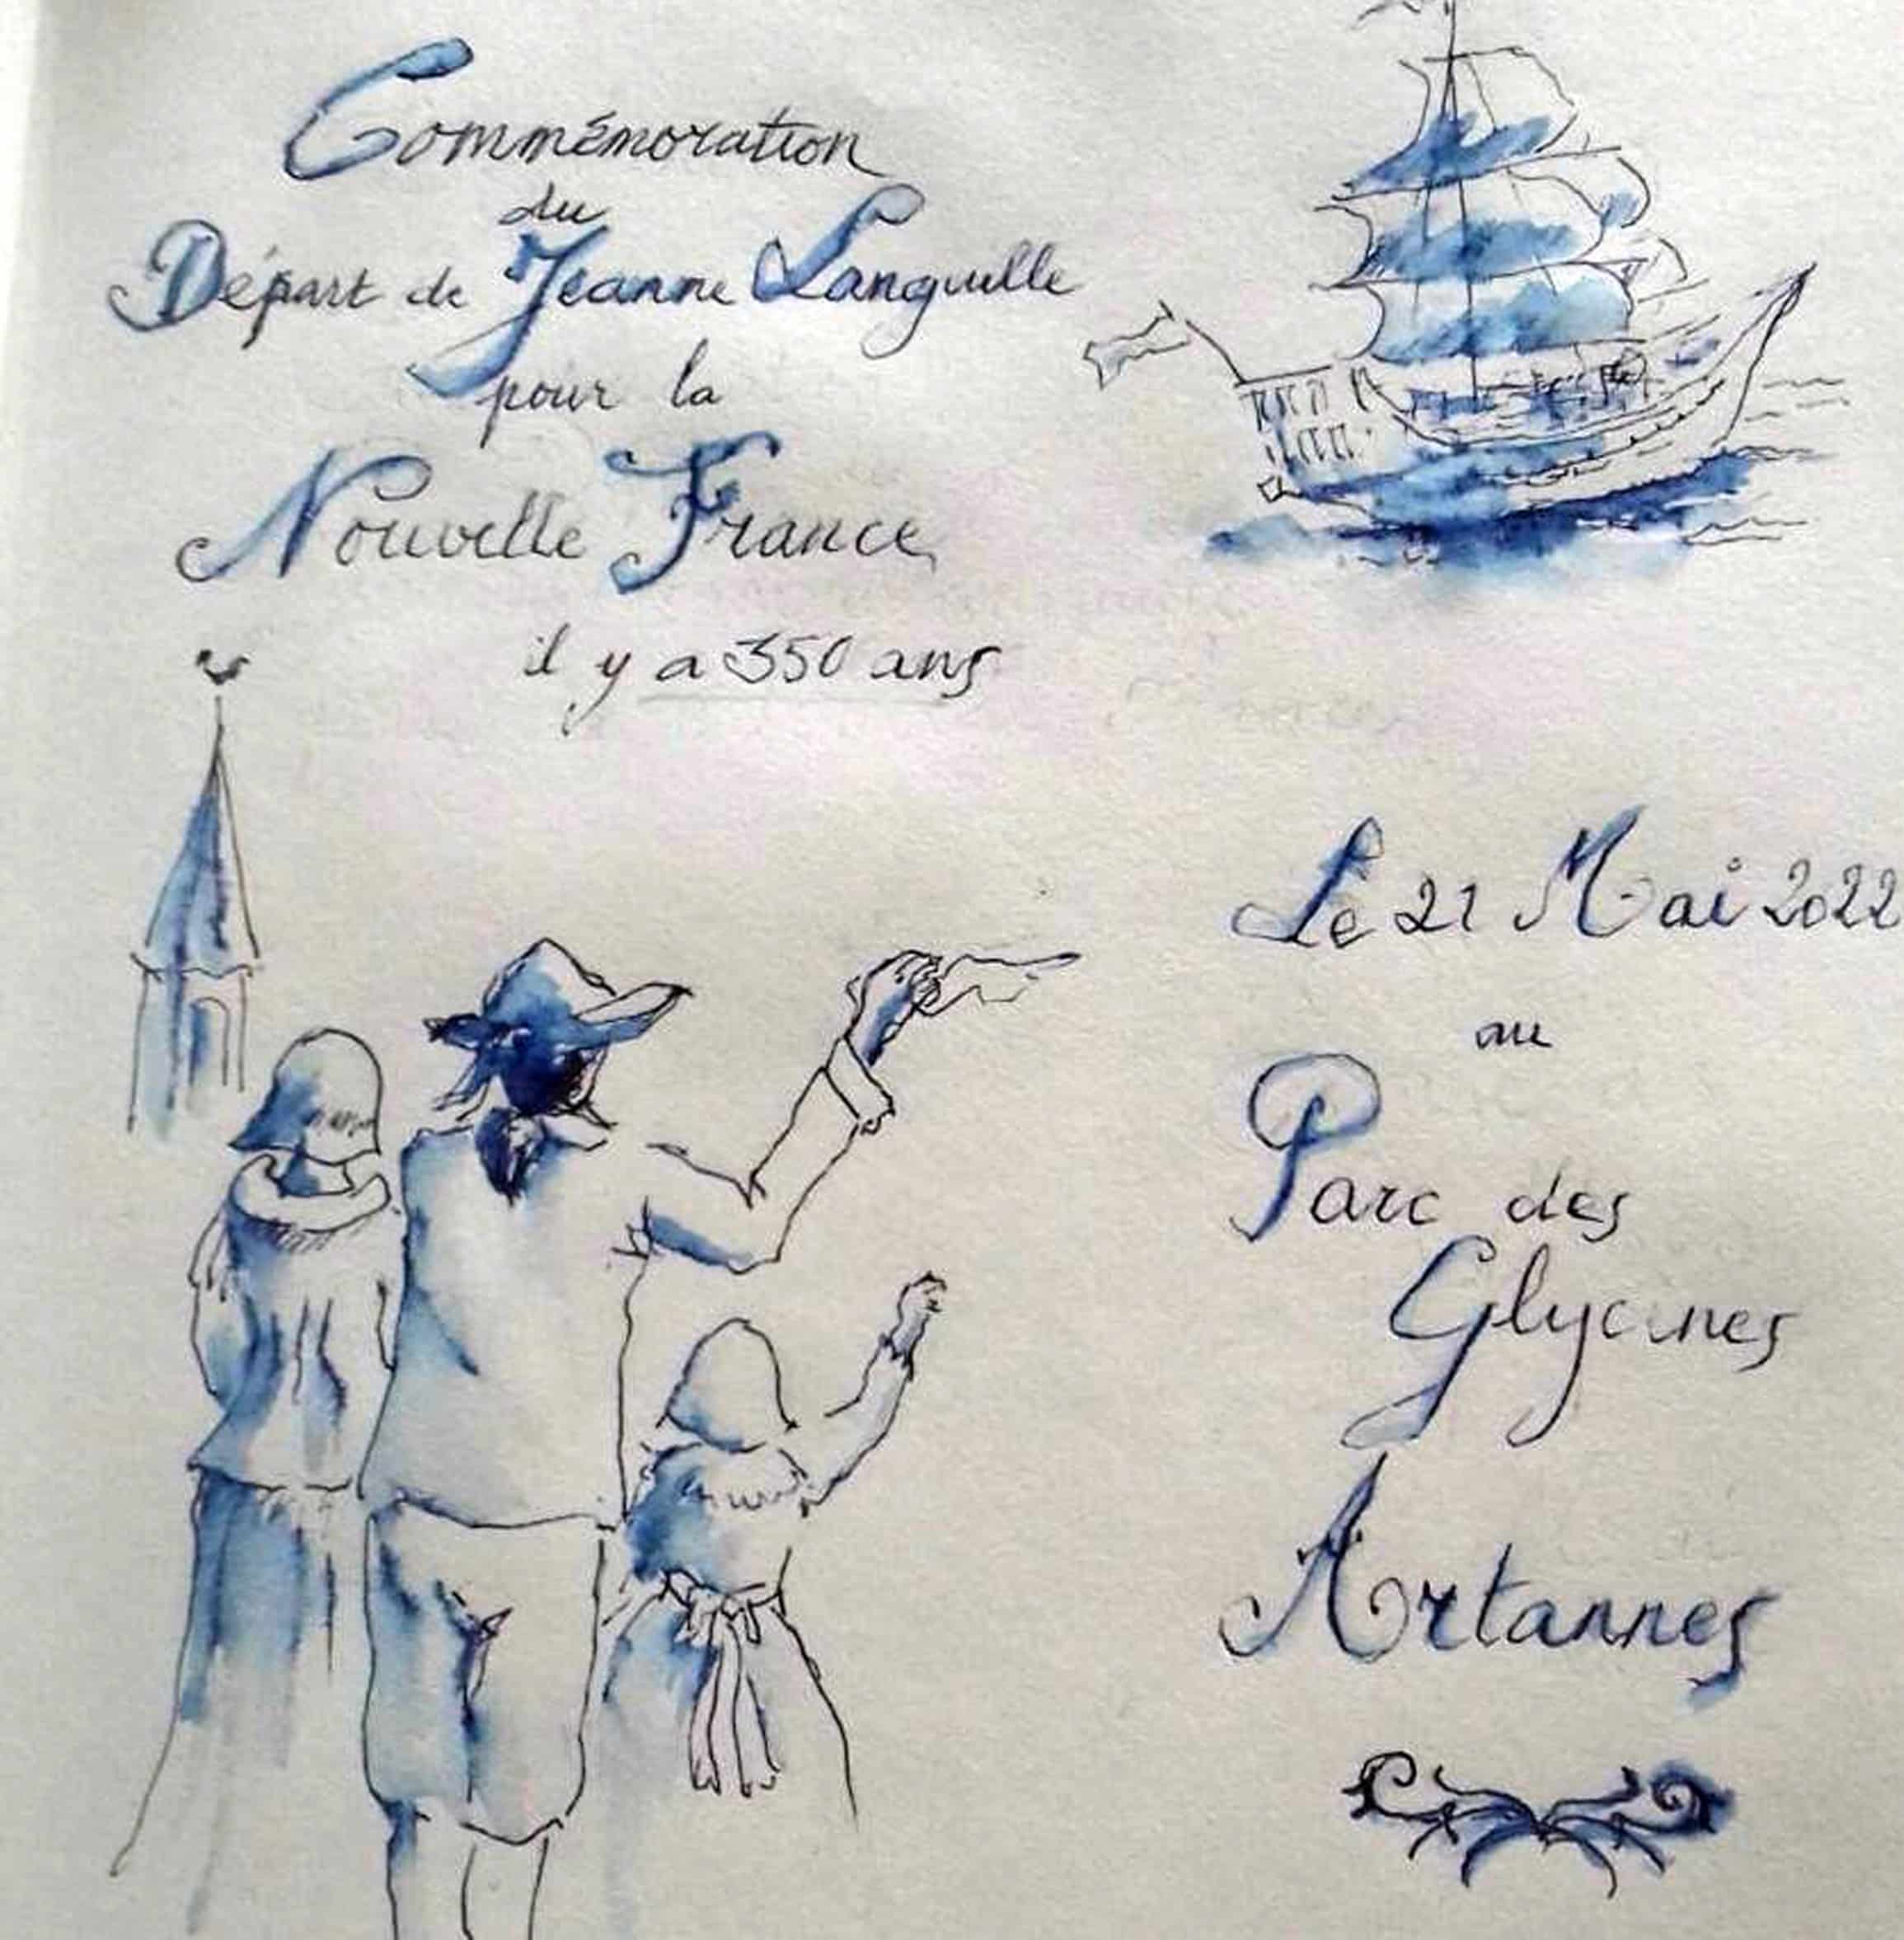 Commémoration
du
Départ de Jeanne Languille
pour la
Nouvelle France
il y a 350 ans
Le 21 Mai 2022
au
Parc des
Glycines
Artannes